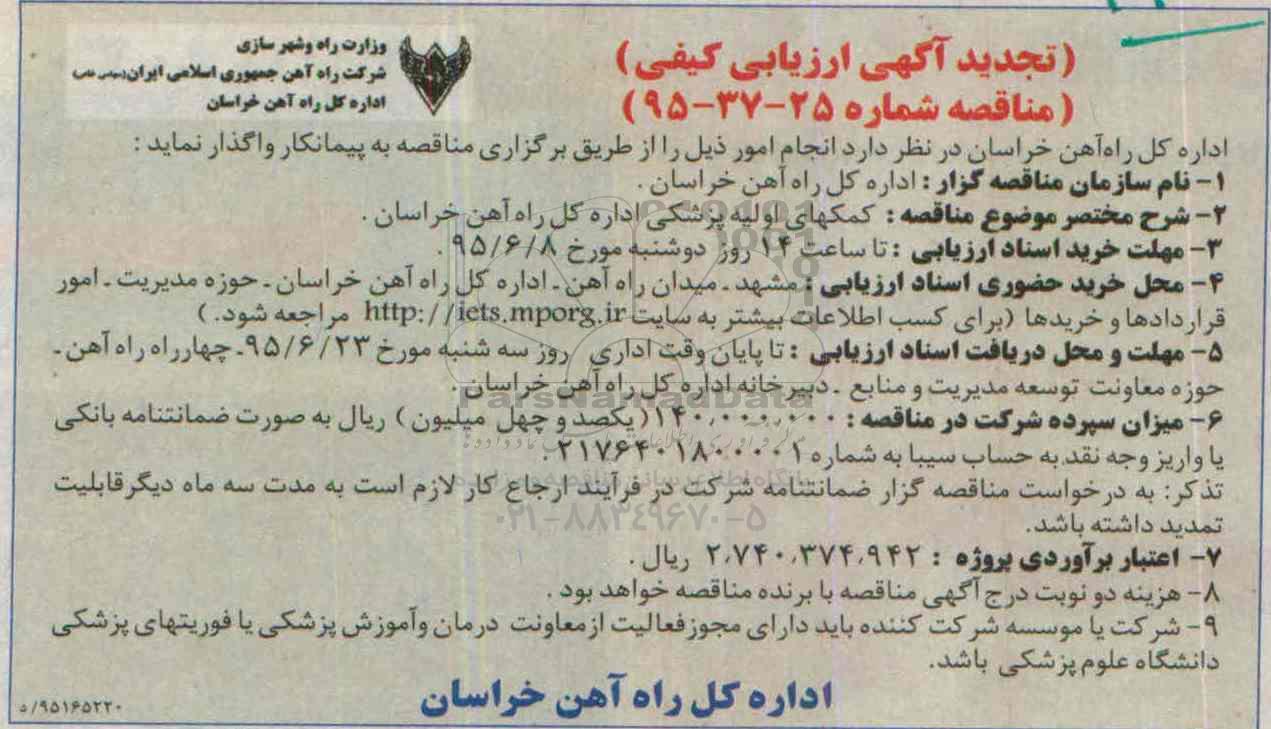 (تجدید آگهی ارزیابی کیفی)
(مناقصه شماره ۲۵-۳۷-۹۵)
وزارت راه وشهر سازی
شرکت راه آهن جمهوری اسلامی ایران
اداره کل راه آهن خراسان
اداره کل راه‌آهن خراسان در نظر دارد انجام امور ذیل را از طریق برگزاری مناقصه به پیمانکار واگذار نماید :
۱- نام سازمان مناقصه گزار : اداره کل راه آهن خراسان .
۲- شرح مختصر موضوع مناقصه : کمکهای اولیه پزشکی اداره کل راه آهن خراسان .
۳- مهلت خرید اسناد ارزیابی : تا ساعت ۱۴ روز دوشنبه مورخ ۹۵/۶/۸ .
۴- محل خرید حضوری اسناد ارزیابی : مشهد ـ میدان راه آهن ـ اداره کل راه آهن خراسان ـ حوزه مدیریت ـ امور
قراردادها و خریدها (برای کسب اطلاعات بیشتر به سایت http://iets.mporg.ir مراجعه شود.)
۵- مهلت و محل دریافت اسناد ارزیابی : تا پایان وقت اداری روز سه شنبه مورخ ۹۵/۶/۲۳ـ چهارراه راه آهن ـ
حوزه معاونت توسعه مدیریت و منابع ـ دبیرخانه اداره کل راه آهن خراسان .
۶- میزان سپرده شرکت در مناقصه : ۱۴۰٬۰۰۰٬۰۰۰ (یکصد و چهل میلیون) ریال به صورت ضمانتنامه بانکی
یا واریز وجه نقد به حساب سیبا به شماره ۲۱۷۶۴۰۱۸۰۰۰۰۱ .
تذکر: به درخواست مناقصه گزار ضمانتنامه شرکت در فرآیند ارجاع کار لازم است به مدت سه ماه دیگر قابلیت
تمدید داشته باشد.
۷- اعتبار برآوردی پروژه : ۲٬۷۴۰٬۳۷۴٬۹۴۲ ریال .
۸- هزینه دو نوبت درج آگهی مناقصه با برنده مناقصه خواهد بود .
۹- شرکت یا موسسه شرکت کننده باید دارای مجوز فعالیت از معاونت درمان وآموزش پزشکی یا فوریتهای پزشکی
دانشگاه علوم پزشکی باشد.
اداره کل راه آهن خراسان
۵/۹۵۱۶۵۲۲۰
ParsNamadData
۰۲۱-۸۸۳۴۹۶۷۰-۵